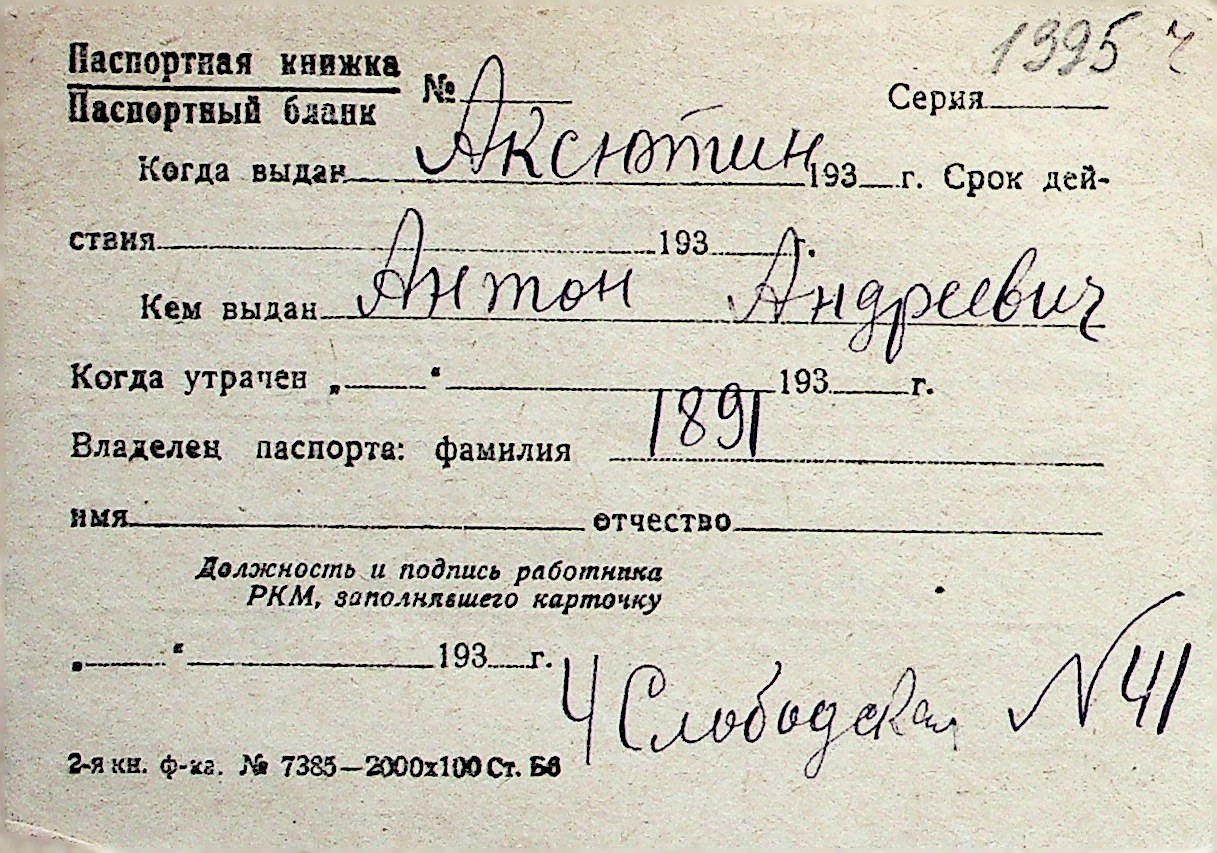 1395 ч
Паспортная книжка
Паспортный бланк № Серия
Аксютин
Когда выдан 193 г. Срок дей-
ствия 193 г.
Антон Андреевич
Кем выдан
Когда утрачен „ “ 193 г.
1891
Владелец паспорта: фамилия
имя отчество
Должность и подпись работника
РКМ, заполнявшего карточку
„ “ 193 г.
4 Слободская № 41
2-я кн. ф-ка. № 7385—2000x100 Ст. Бб